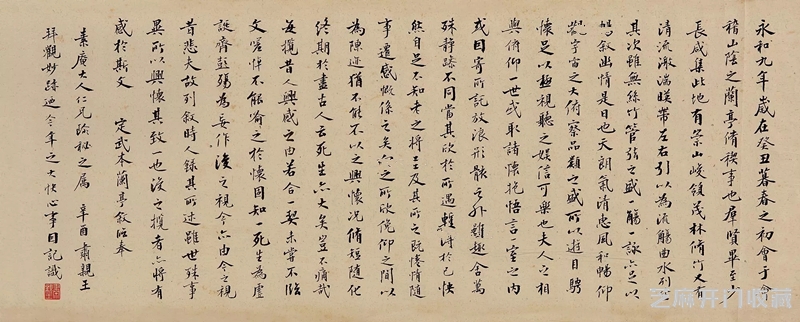 永和九年歲在癸丑暮春之初會于會
稽山陰之蘭亭脩稧事也羣賢畢至少
長咸集此地有崇山峻領茂林脩竹又有
清流激湍暎帶左右引以為流觴曲水列坐
其次雖無絲竹管弦之盛一觴一詠亦足以
暢敘幽情是日也天朗氣清惠風和暢仰
觀宇宙之大俯察品類之盛所以遊目騁
懷足以極視聽之娛信可樂也夫人之相
與俯仰一世或取諸懷抱悟言一室之內
或因寄所託放浪形骸之外雖趣舍萬
殊靜躁不同當其欣於所遇輙得於己快
然自足不知老之將至及其所之既惓情隨
事遷感慨係之矣向之所欣俛仰之間以
為陳迹猶不能不以之興懷況脩短隨化
終期於盡古人云死生亦大矣豈不痛哉
每攬昔人興感之由若合一契未嘗不臨
文嗟悼不能喻之於懷固知一死生為虛
誕齊彭殤為妄作後之視今亦由今之視
昔悲夫故列敘時人錄其所述雖世殊事
異所以興懷其致一也後之攬者亦將有
感於斯文 定武本蘭亭敘臨奉
素廣大人仁兄 秘之屬 辛酉肅親王
拜觀妙跡 今年之大快心事因記識
芝麻开门收藏